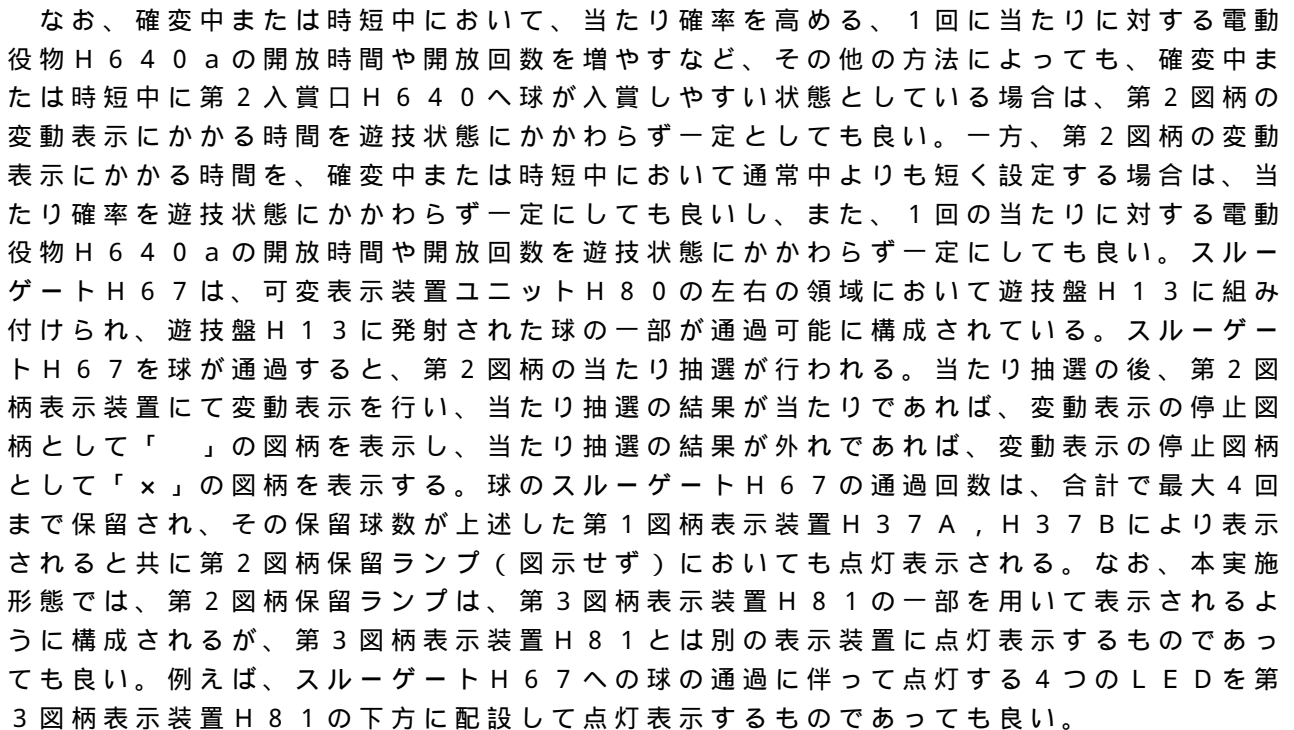 なお、確変中または時短中において、当たり確率を高める、1回に当たりに対する電動
役物H640aの開放時間や開放回数を増やすなど、その他の方法によっても、確変中ま
たは時短中に第2入賞口H640へ球が入賞しやすい状態としている場合は、第2図柄の
変動表示にかかる時間を遊技状態にかかわらず一定としても良い。一方、第2図柄の変動
表示にかかる時間を、確変中または時短中において通常中よりも短く設定する場合は、当
たり確率を遊技状態にかかわらず一定にしても良いし、また、1回の当たりに対する電動
役物H640aの開放時間や開放回数を遊技状態にかかわらず一定にしても良い。スルー
ゲートH67は、可変表示装置ユニットH80の左右の領域において遊技盤H13に組み
付けられ、遊技盤H13に発射された球の一部が通過可能に構成されている。スルーゲー
トH67を球が通過すると、第2図柄の当たり抽選が行われる。当たり抽選の後、第2図
柄表示装置にて変動表示を行い、当たり抽選の結果が当たりであれば、変動表示の停止図
柄として「　」の図柄を表示し、当たり抽選の結果が外れであれば、変動表示の停止図柄
として「×」の図柄を表示する。球のスルーゲートH67の通過回数は、合計で最大4回
まで保留され、その保留球数が上述した第1図柄表示装置H37A,H37Bにより表示
されると共に第2図柄保留ランプ(図示せず)においても点灯表示される。なお、本実施
形態では、第2図柄保留ランプは、第3図柄表示装置H81の一部を用いて表示されるよ
うに構成されるが、第3図柄表示装置H81とは別の表示装置に点灯表示するものであっ
ても良い。例えば、スルーゲートH67への球の通過に伴って点灯する4つのLEDを第
3図柄表示装置H81の下方に配設して点灯表示するものであっても良い。